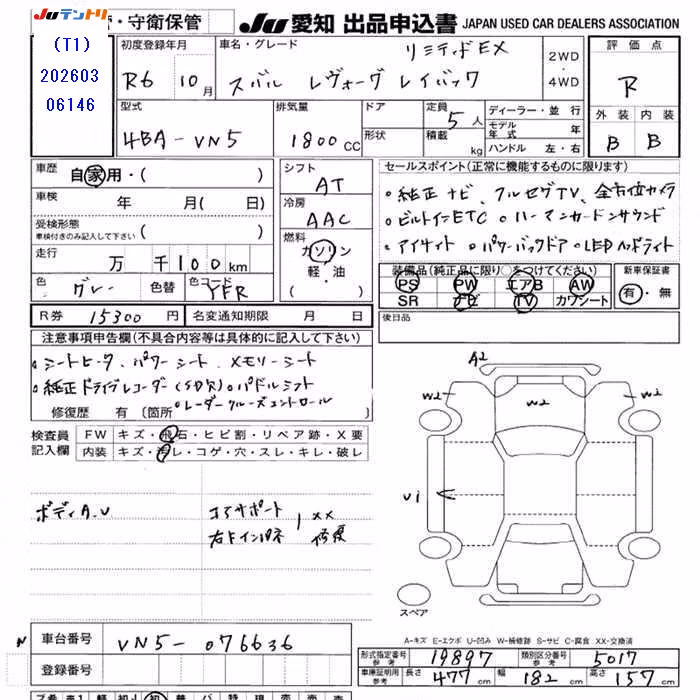 JUテントリ ・守衛保管 JU 愛知 出品申込書 JAPAN USED CAR DEALERS ASSOCIATION
(T1)
202603
06146
初度登録年月 車名・グレード リミテッドEX 2WD・4WD 評価点
R6 10月 スバル レヴォーグ レイバック R
型式 排気量 ドア 定員 5人 ディーラー・並行 外装 内装
4BA-VN5 1800CC 形状 積載 kg モデル年式 年 B B
ハンドル 左・右
車歴 自家用・( ) シフト AT セールスポイント(正常に機能するものに限ります)
車検 年 月( 日) 冷房 AAC 。純正ナビ、フルセグTV、全方位カメラ
受検形態 車検付きのみ記入して下さい ( ) 。ビルトインETC 。ハーマンカードンサウンド
燃料 ガソリン 軽・油 ( ) 。アイサイト 。パワーバックドア 。LEDヘッドライト
走行 万 千100km
色 グレー 色替 色コード YFR
装備品(純正品に限り○をつけてください) 新車保証書
PS PW エアB AW 有・無
SR ナビ TV カワシート
R券 15300円 名変通知期限 月 日 後日品
注意事項申告欄(不具合内容等は具体的に記入して下さい)
。シートヒータ、パワーシート、メモリーシート
。純正ドライブレコーダー(SDR)。パドルシフト
。レーダークルーズコントロール
修復歴 有 〔箇所
検査員記入欄 FW キズ・飛石・ヒビ割・リペア跡・X要
内装 キズ・汚レ・コゲ・穴・スレ・キレ・破レ
ボディA.U コアサポート 右 XX 修復
A2
W2 W2 W2
U1
スペア
A-キズ E-エクボ U-凹み W-補修跡 S-サビ C-腐食 XX-交換済
N 車台番号 VN5-076636
登録番号
形式指定番号 参考 19897 類別区分番号 参考 5017
車庫証明用 参考 長さ 477cm 幅 182cm 高さ 157cm